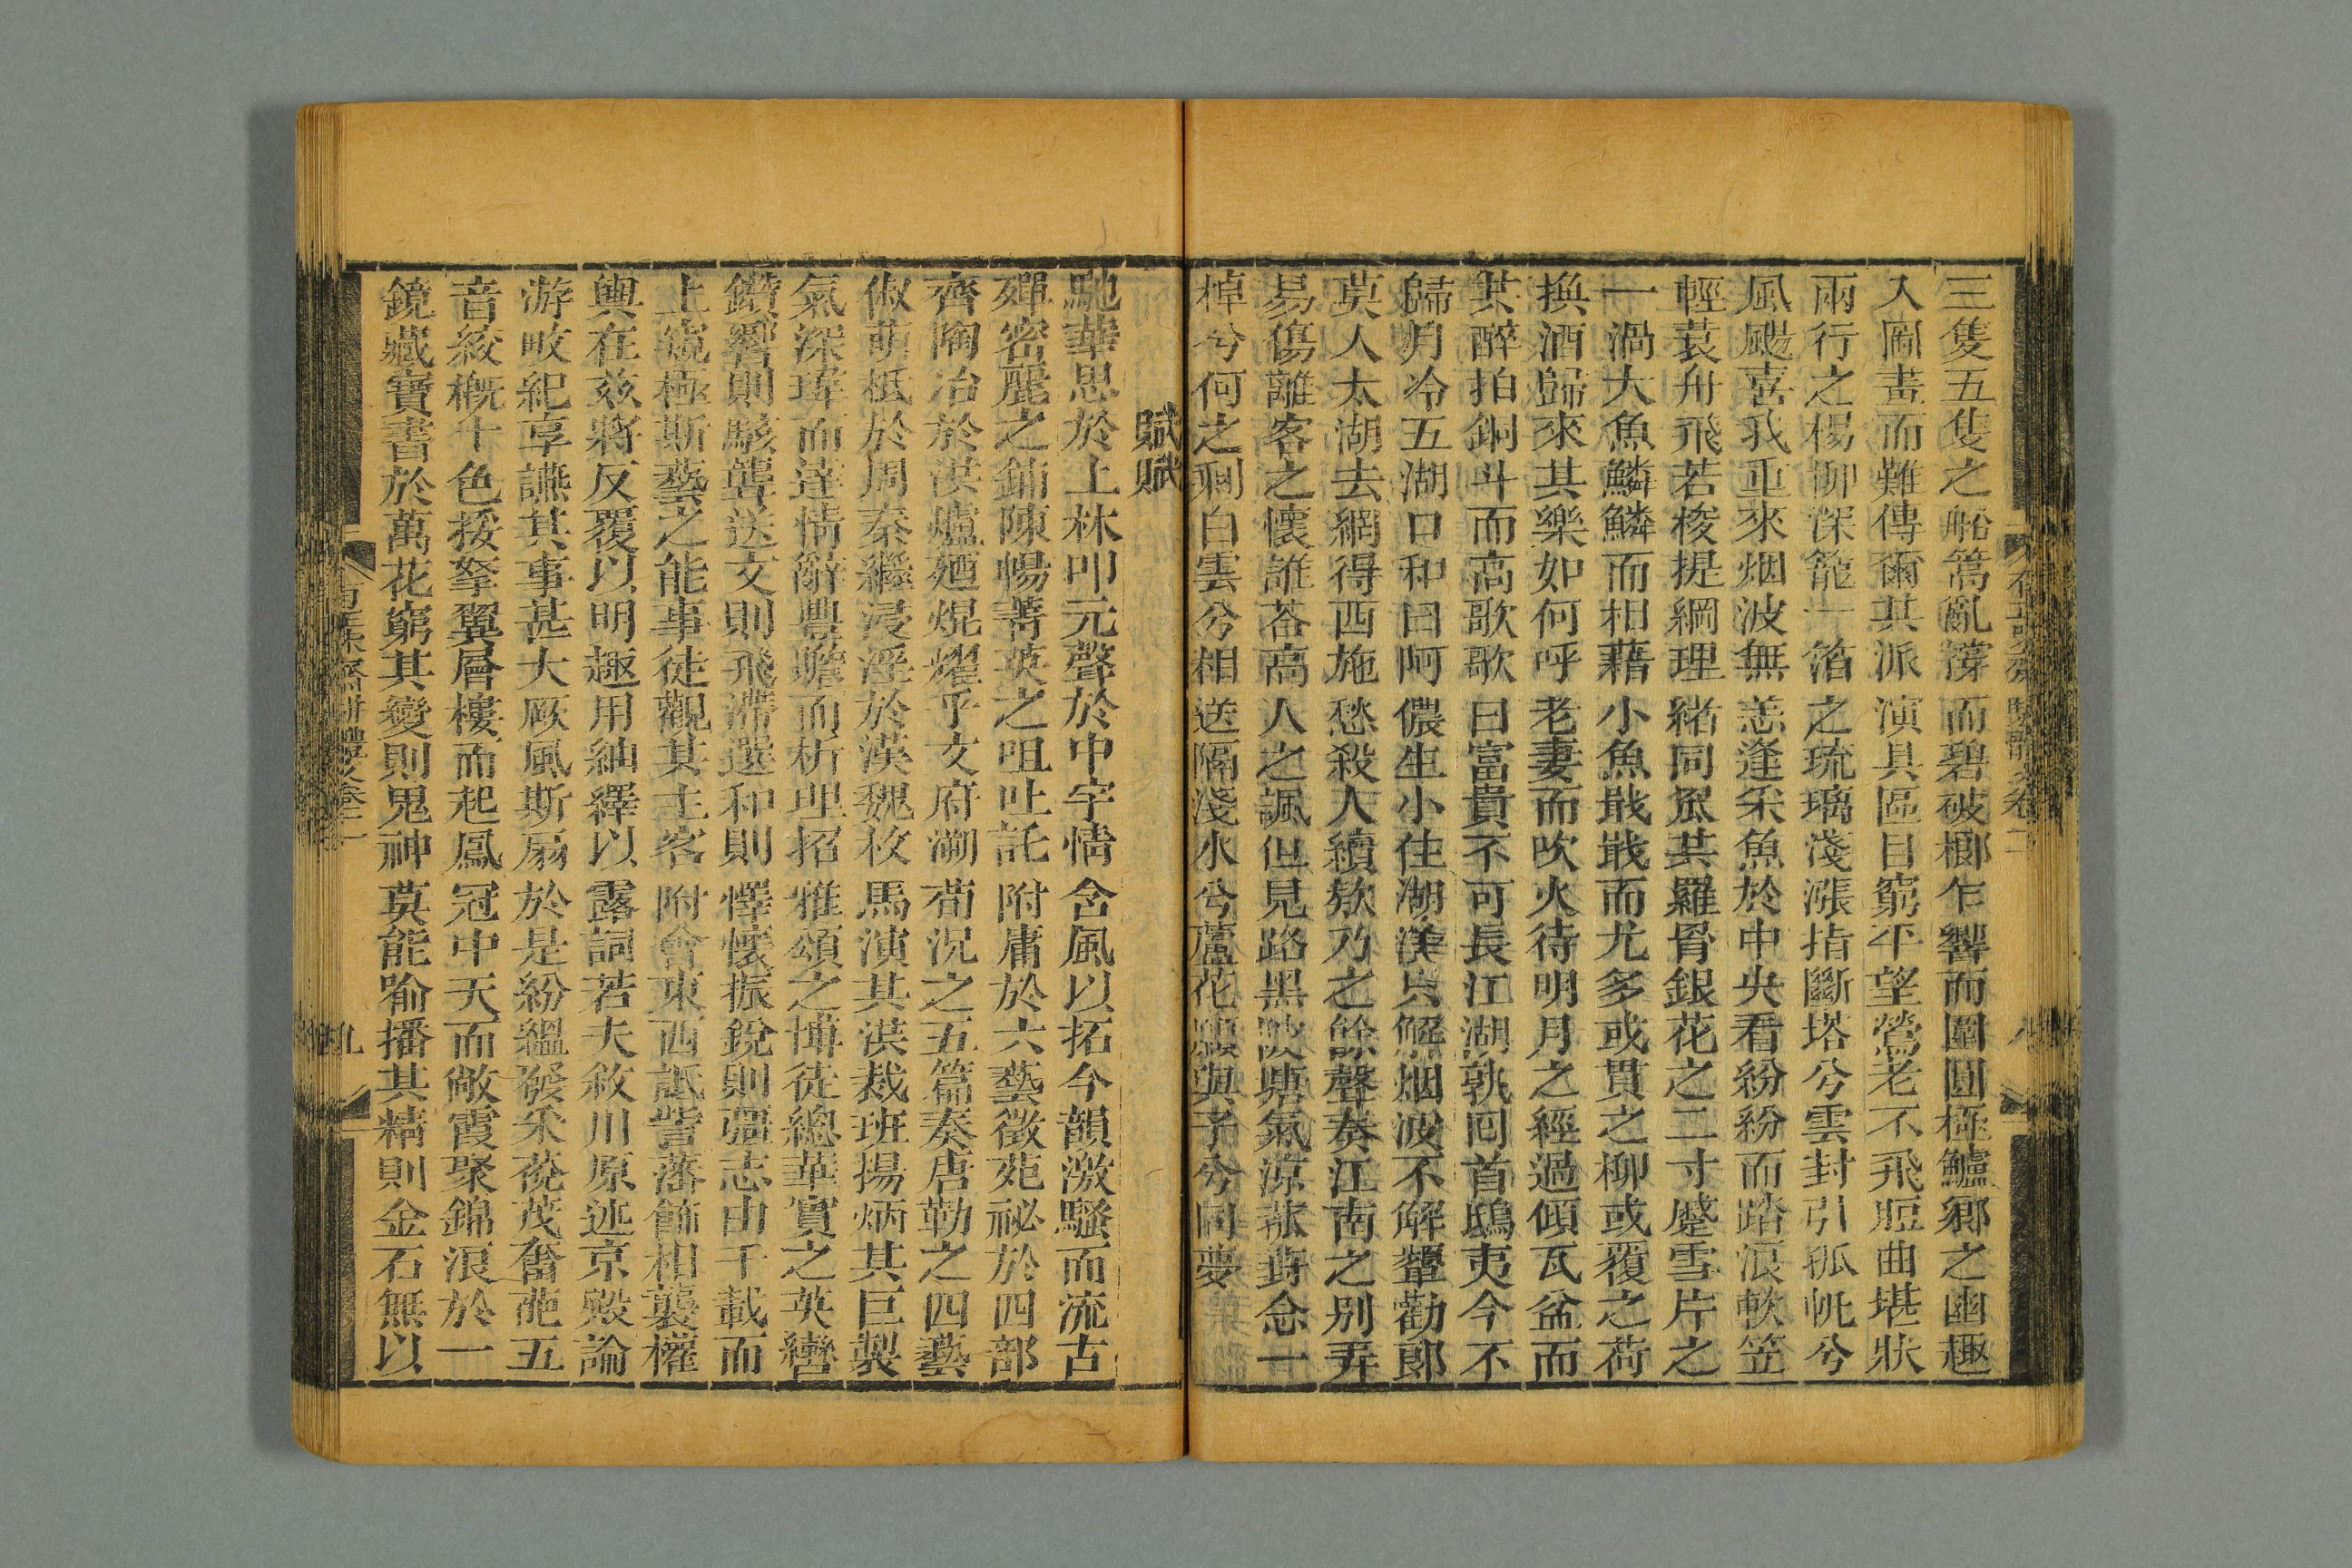 三隻五隻之船篙亂篣而碧破榔乍響而圍圓極鱸鄉之幽趣
入圖畫而難傳爾其派演具區目窮平望鶯老不飛脰曲堪狀
兩行之楊柳深籠一箔之琉璃淺漲指斷塔兮雲封引孤帆兮
風颺喜我重來烟波無恙逢采魚於中央看紛紛而踏浪軟笠
輕蓑舟飛若梭提綱理緒同眾其羅骨銀花之二寸蹙雪片之
一渦大魚鱗鱗而相藉小魚戢戢而尤多或貫之柳或覆之荷
換酒歸來其樂如何呼老妻而吹火待明月之經過傾瓦盆而
共醉拍銅斗而高歌歌曰富貴不可長江湖孰回首鴟夷今不
歸月冷五湖口和曰阿儂生小住湖漘只解烟波不解顰勸郎
莫人太湖去網得西施愁殺人續欸乃之餘聲奏江南之別弄
易傷離客之懷誰荅高人之諷但見路黑陂塘氣涼菰葑念一
棹兮何之剩白雲兮相送隔淺水兮蘆花與子兮同夢
賦賦
馳華思於上林叩元聲於中宇情含風以拓今韻激騷而流古
殫密麗之鋪陳暢菁英之咀吐託附庸於六藝徵苑祕於四部
齊陶冶於洪爐廼焜燿乎文府溯荀況之五篇奏唐勒之四藝
俶萌柢於周秦繼浸淫於漢魏枚馬演其洪裁班揚炳其巨製
氣深瑋而達情辭豐贍而析理招雅頌之博徒總華實之英轡
鑽響則駭聾送文則飛滯選和則懌懷振銳則彊志由千載而
上窺極斯藝之能事徒觀其主客附會東西詆訾藩飾相襲權
輿在茲將反覆以明趣用紬繹以露詞若夫敘川原述京殿論
游畋紀享讌其事甚大厥風斯扇於是紛縕發采蕤茂奮葩五
音絞槪十色接拏翼層樓而起鳳冠中天而敞霞聚錦浪於一
鏡藏寶書於萬花窮其變則鬼神莫能喻播其精則金石無以
九